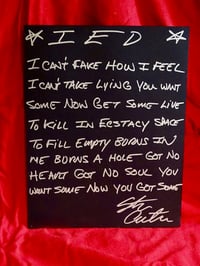 I E D
I CAN'T FAKE HOW I FEEL
I CAN'T TAKE LYING YOU WANT
SOME NOW GET SOME LIVE
TO KILL IN ECSTACY SPACE
TO FILL EMPTY BURNS IN
ME BURNS A HOLE GOT NO
HEART GOT NO SOUL YOU
WANT SOME NOW YOU GOT SOME